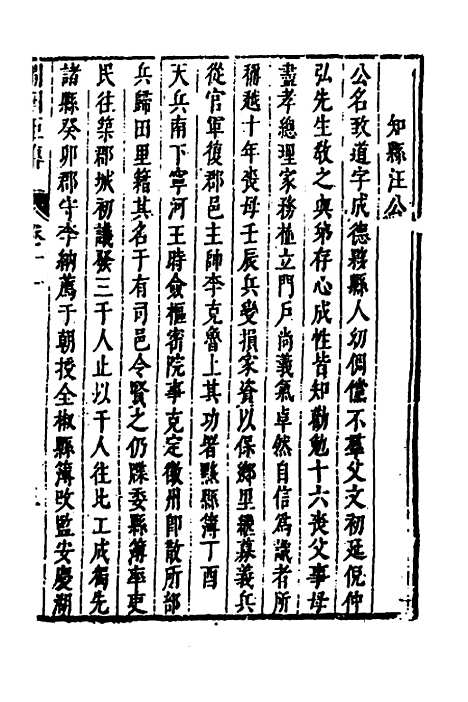 知縣汪公
公名致道字成德黟縣人幼倜儻不羣父文初延倪仲
弘先生教之與弟存心成性皆知勸勉十六喪父事母
盡孝總理家務植立門戶尚義氣卓然自信爲識者所
稱越十年喪母壬辰兵變損家資以保鄉里纒募義兵
從官軍復郡邑主帥李克魯上其功署黟縣簿丁酉
大兵南下寧河王時僉樞密院事克定徽州卽散所部
兵歸田里籍其名于有司邑令賢之仍牒委縣簿率吏
民往築郡城初議發三千人止以千人往比工成獨先
諸縣癸卯郡守李納薦于朝授全椒縣簿改監安慶湖